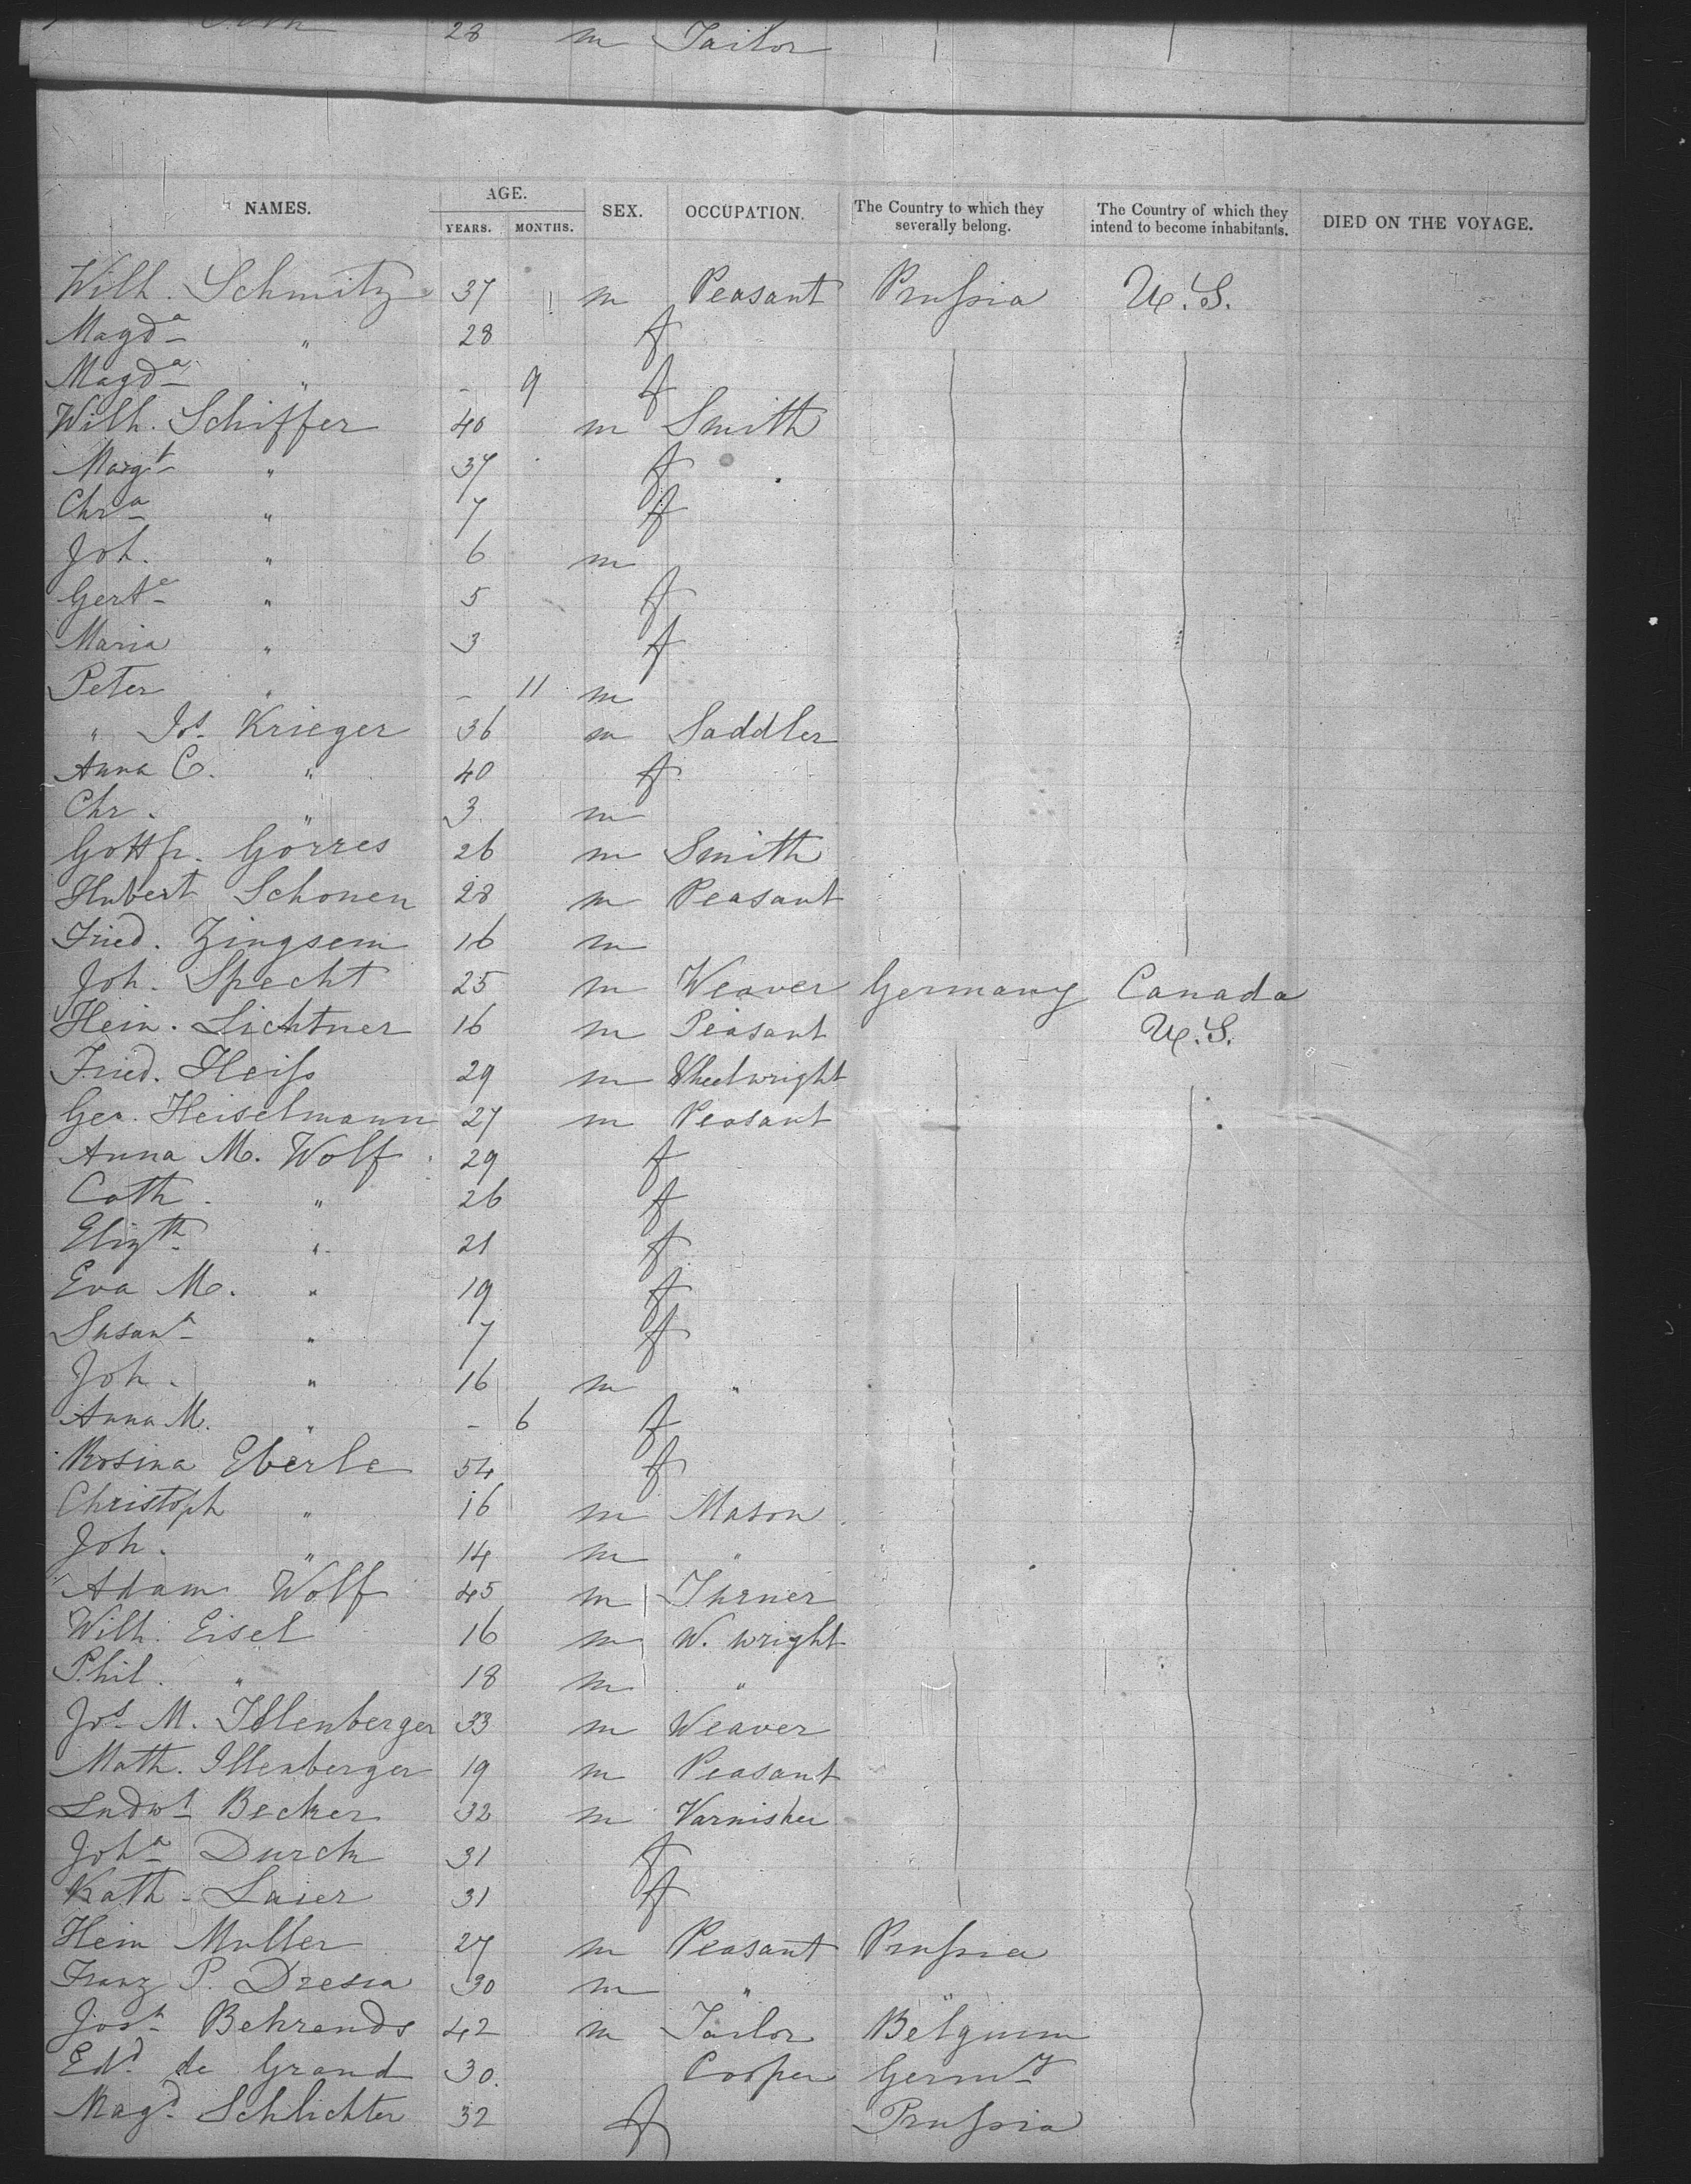 28 m Tailor
NAMES. AGE. YEARS. MONTHS. SEX. OCCUPATION. The Country to which they severally belong. The Country of which they intend to become inhabitants. DIED ON THE VOYAGE.
Wilh. Schmitz 37 m Peasant Prussia U.S.
Magda " 28 f
Magda " - 9 f
Wilh. Schiffer 40 m Smith
Margt " 37 f
Chra " 7 f
Joh. " 6 m
Gerte " 5 f
Maria " 3 f
Peter " - 11 m
" Jos. Krieger 36 m Saddler
Anna C. " 40 f
Chr. " 3 m
Gottfr. Görres 26 m Smith
Hubert Schonen 28 m Peasant
Fried. Zingsem 16 m
Joh. Specht 25 m Weaver Germany Canada
Hein. Lichtner 16 m Peasant U.S.
Fried. Heiss 29 m Wheelwright
Geo. Heiselmann 27 m Peasant
Anna M. Wolf 29 f
Cath. " 26 f
Elizth " 21 f
Eva M. " 19 f
Susana " 7 f
Joh. " 16 m "
Anna M. " - 6 f
Rosina Eberle 54 f
Christoph " 16 m Mason
Joh. " 14 m "
Adam Wolf 45 m Turner
Wilh. Eisel 16 m W. wright
Phil. " 18 m "
Jos. M. Illenberger 33 m Weaver
Math. Illenberger 19 m Peasant
Ludwg Becker 32 m Varnisher
Joha Durch 31 f
Kath. Laier 31 f
Hein Muller 27 m Peasant Prussia
Franz P. Dresia 30 m " "
Josh Behrends 42 m Tailor Belgium
Edd de Grand 30. Cooper Germy
Magd. Schlichter 32 f Prussia